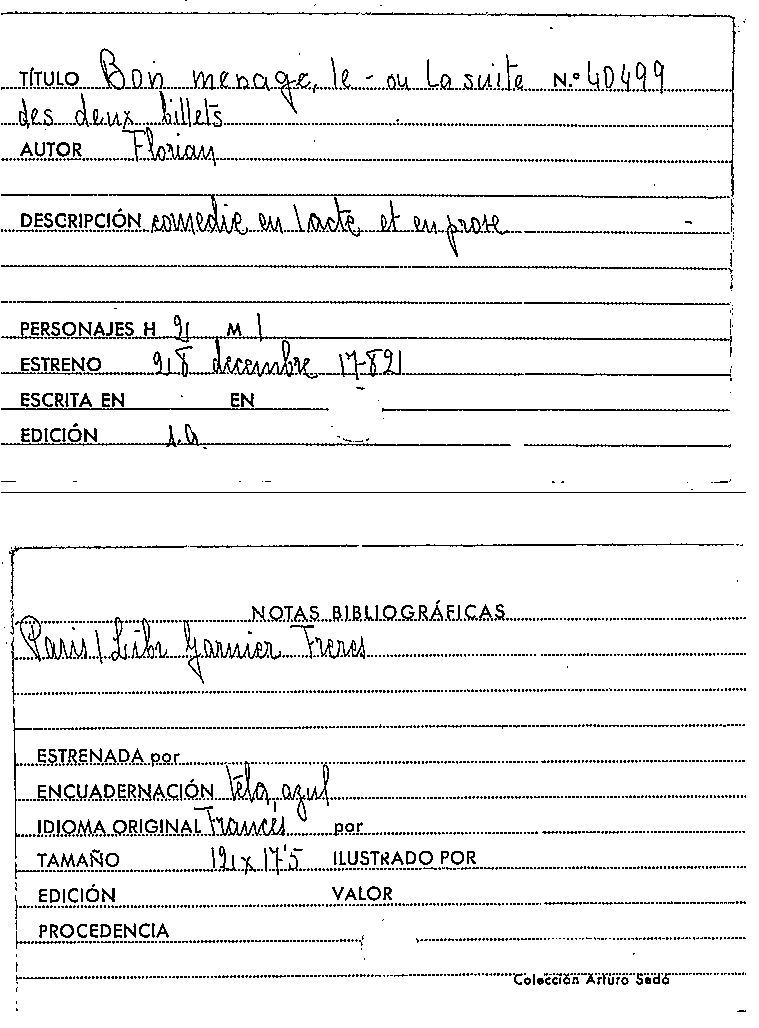 TÍTULO Bon menage, le - ou La suite N.º 40499
des deux billets
AUTOR Florian
DESCRIPCIÓN comedie en 1 acte et en prose
PERSONAJES H 2 M 1
ESTRENO 28 decembre 1782
ESCRITA EN EN
EDICIÓN s.a.
NOTAS BIBLIOGRÁFICAS
Paris / Libr Garnier Freres
ESTRENADA por
ENCUADERNACIÓN tela, azul
IDIOMA ORIGINAL Francés por
TAMAÑO 12 x 17'5 ILUSTRADO POR
EDICIÓN VALOR
PROCEDENCIA
Colección Arturo Sedó